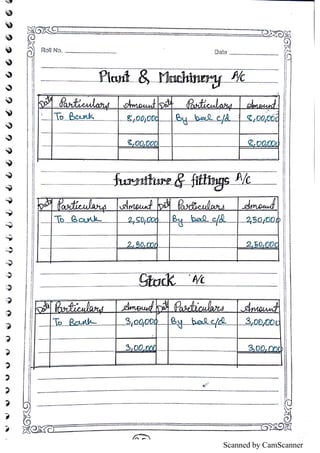 Roll No. Date
Plant & Machinery A/c
Date Particulars Amount Date Particulars Amount
To Bank 8,00,000 By bal c/d 8,00,000
8,00,000 8,00,000
furniture & fittings A/c
Date Particulars Amount Date Particulars Amount
To Bank 2,50,000 By bal c/d 2,50,000
2,50,000 2,50,000
Stock A/c
Date Particulars Amount Date Particulars Amount
To Bank 3,00,000 By bal c/d 3,00,000
3,00,000 3,00,000
Scanned by CamScanner